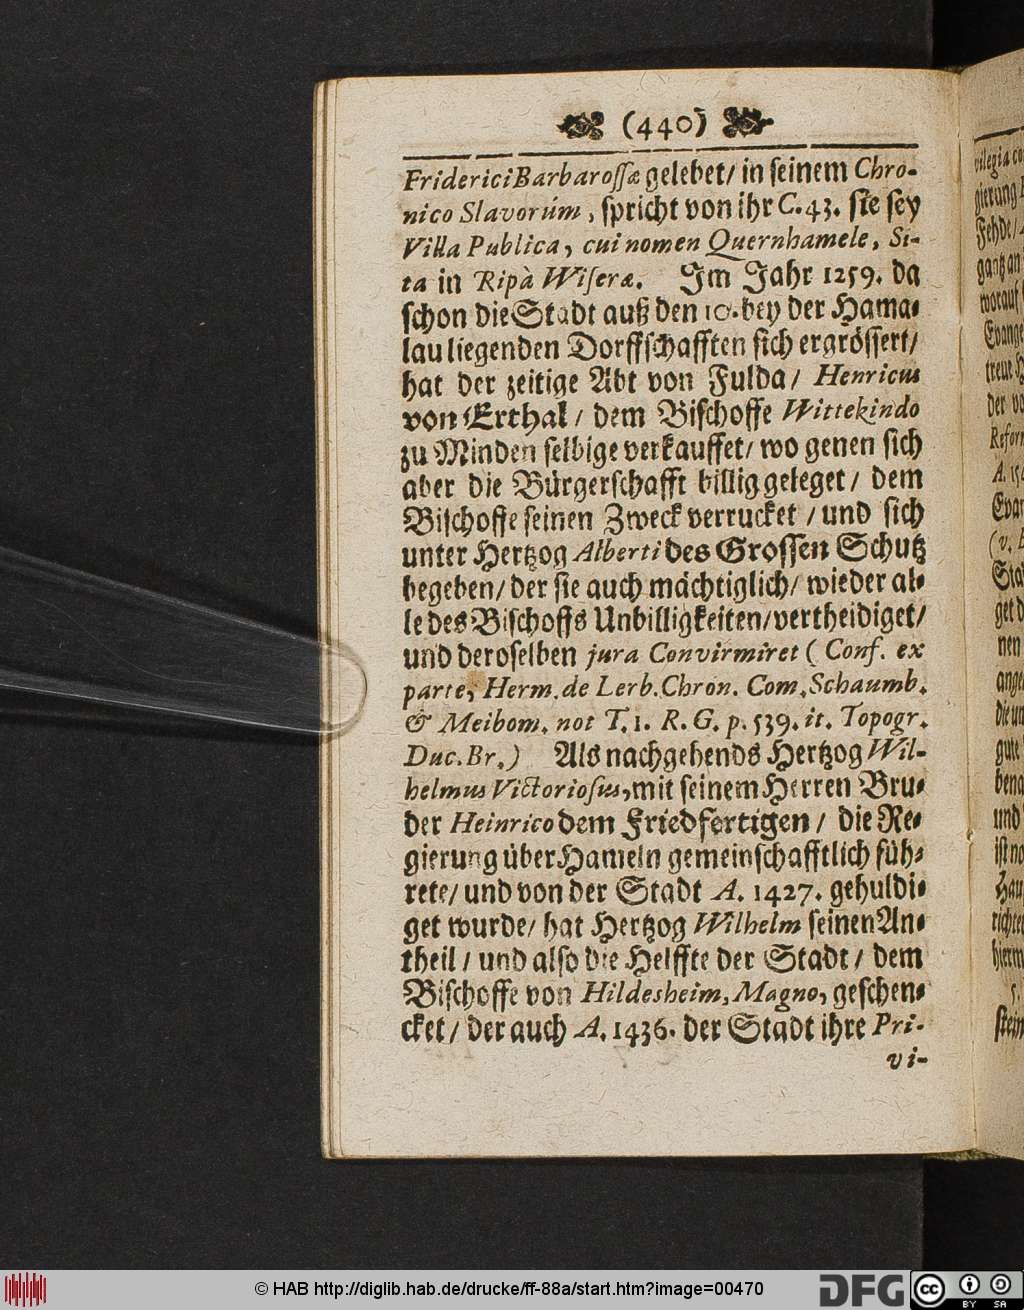 (440)
Friderici Barbarossæ gelebet/ in seinem Chro-
nico Slavorúm, spricht von ihr C. 43. sie sey
Villa Publica, cui nomen Quernhamele, Si-
ta in Ripà Wiseræ. Im Jahr 1259. da
schon die Stadt auß den 10. bey der Hama-
lau liegenden Dorffschafften sich ergrössert/
hat der zeitige Abt von Fulda/ Henricus
von Erthal/ dem Bischoffe Wittekindo
zu Minden selbige verkauffet/ wo genen sich
aber die Bürgerschafft billig geleget/ dem
Bischoffe seinen Zweck verrucket/ und sich
unter Hertzog Alberti des Grossen Schutz
begeben/ der sie auch mächtiglich/ wieder al-
le des Bischoffs Unbilligkeiten/ vertheidiget/
und deroselben jura Convirmiret (Conf. ex
parte, Herm. de Lerb. Chron. Com. Schaumb.
& Meibom. not T. 1. R. G. p. 539. it. Topogr.
Duc. Br.) Als nachgehends Hertzog Wil-
helmus Victoriosus, mit seinem Herren Bru-
der Heinrico dem Friedfertigen/ die Re-
gierung über Hameln gemeinschafftlich füh-
rete/ und von der Stadt A. 1427. gehuldi-
get wurde/ hat Hertzog Wilhelm seinen An-
theil/ und also die Helffte der Stadt/ dem
Bischoffe von Hildesheim, Magno, geschen-
cket/ der auch A. 1436. der Stadt ihre Pri-
vi-
vilegia
gierung
Fehde/
gantz an
worauf
Evange
treue
der
Refor
A.
Evan
(v.
Sta
get d
nen
ange
die un
gute
bena
und
ist no
Hau
richte
hierm
5.
stein
© HAB http://diglib.hab.de/drucke/ff-88a/start.htm?image=00470
DFG
cc
BY SA